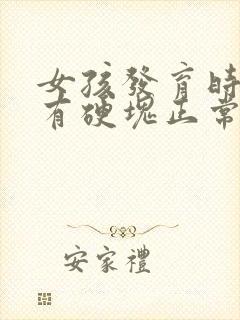 女孩發育時
有硬塊正常
安家禮